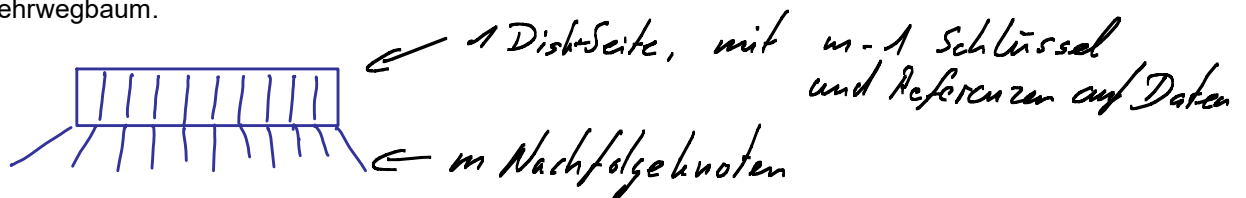 ehrwegbaum.
1 Disk-Seite, mit m-1 Schlüssel
und Referenzen auf Daten
m Nachfolgeknoten